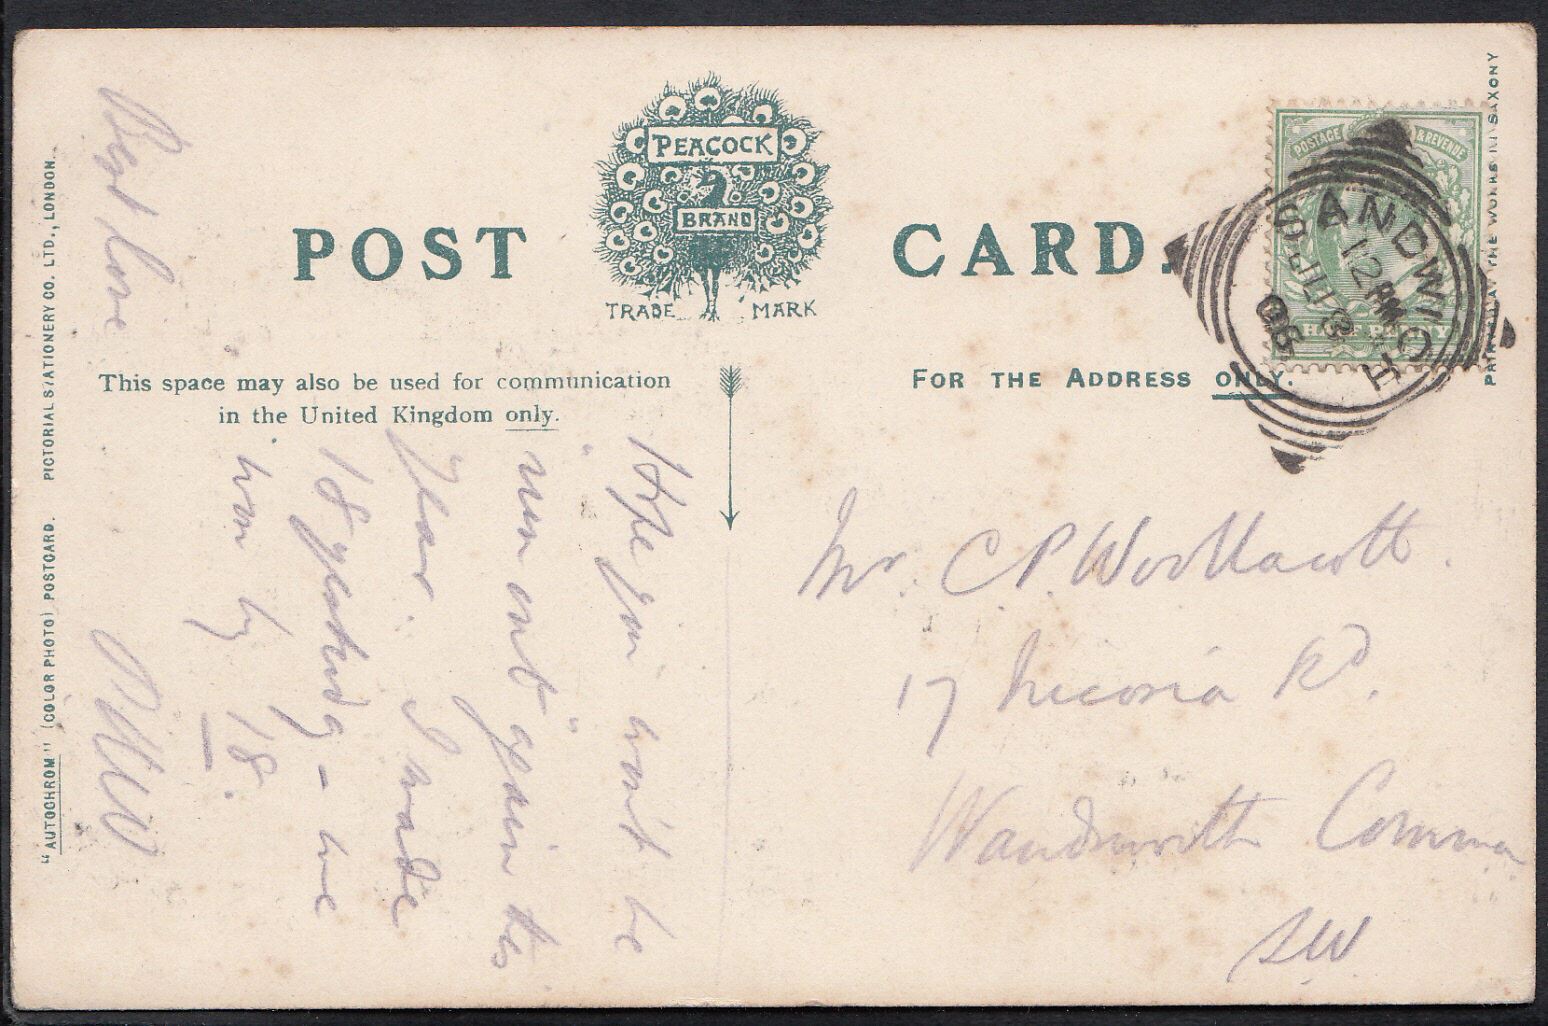 POST CARD.
PEACOCK
BRAND
TRADE MARK
This space may also be used for communication
in the United Kingdom only.
FOR THE ADDRESS ONLY.
"AUTOCHROM" (COLOR PHOTO) POSTCARD. PICTORIAL STATIONERY CO. LTD., LONDON.
AT THE WORKS IN SAXONY
POSTAGE & REVENUE
HALF PENNY
SANDWICH
12
JU 3
08
Hope you won't be
"run out" again this
year. I made
18 yesterday - we
won by 18.
Best love
Mr. C. P. Woollacott.
17 Rd.
Wandsworth Common
SW